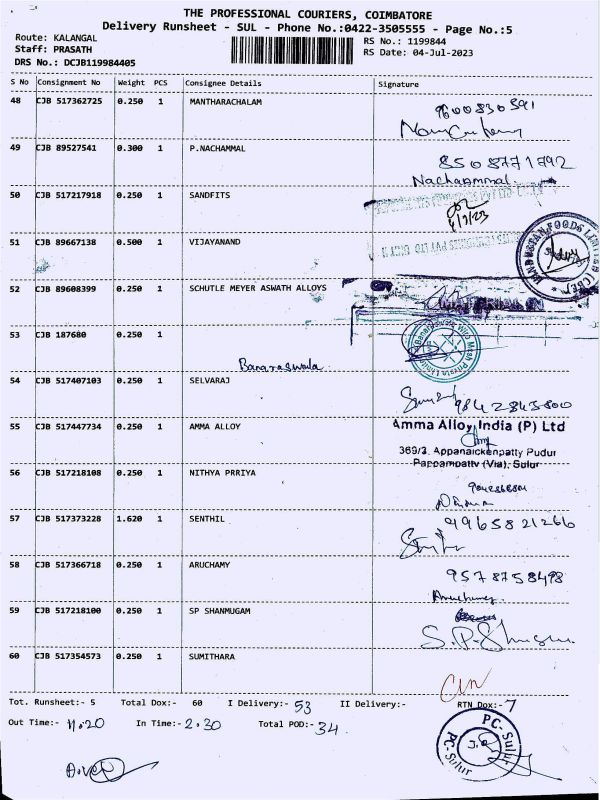 THE PROFESSIONAL COURIERS, COIMBATORE
Delivery Runsheet - SUL - Phone No.:0422-3505555 - Page No.:5
Route: KALANGAL
Staff: PRASATH
DRS No.: DCJB119984405
RS No.: 1199844
RS Date: 04-Jul-2023
S No Consignment No Weight PCS Consignee Details Signature
48 CJB 517362725 0.250 1 MANTHARACHALAM 9600830591
49 CJB 89527541 0.300 1 P.NACHAMMAL 8508771792
Nachammal.
50 CJB 517217918 0.250 1 SANDFITS
4/7/23
51 CJB 89667138 0.500 1 VIJAYANAND
HINDUSTAN FOODS LIMITED (CBE)
52 CJB 89608399 0.250 1 SCHUTLE MEYER ASWATH ALLOYS
53 CJB 187680 0.250 1
Banaraswala
Banaraswala Wire Mesh Private Limited
54 CJB 517407103 0.250 1 SELVARAJ
9842843800
55 CJB 517447734 0.250 1 AMMA ALLOY Amma Alloy India (P) Ltd
369/3, Appanaickenpatty Pudur
Pappampatty (Via), Sulur
56 CJB 517218108 0.250 1 NITHYA PRRIYA
57 CJB 517373228 1.620 1 SENTHIL 9965821266
58 CJB 517366718 0.250 1 ARUCHAMY 9578758498
Aruchamy
59 CJB 517218100 0.250 1 SP SHANMUGAM
60 CJB 517354573 0.250 1 SUMITHARA
Tot. Runsheet:- 5 Total Dox:- 60 I Delivery:- 53 II Delivery:- RTN Dox:- 7
Out Time:- 11.20 In Time:- 2.30 Total POD:- 34.
PC- Sulur
PC-Sulur